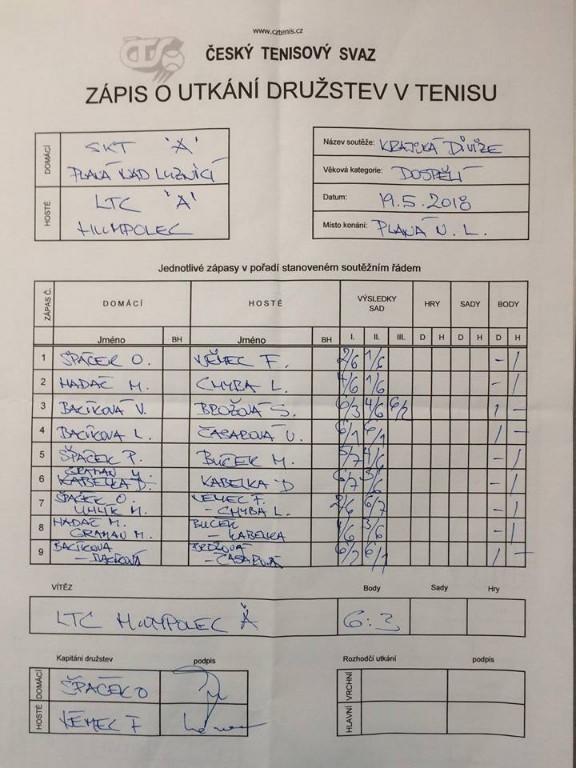 www.cztenis.cz
ČESKÝ TENISOVÝ SVAZ
ZÁPIS O UTKÁNÍ DRUŽSTEV V TENISU
DOMÁCÍ
SKT 'A'
PLANÁ NAD LUŽNICÍ
HOSTÉ
LTC 'A'
HUMPOLEC
Název soutěže: KRAJSKÁ DIVIZE
Věková kategorie: DOSPĚLÍ
Datum: 19.5.2018
Místo konání: PLANÁ N. L.
Jednotlivé zápasy v pořadí stanoveném soutěžním řádem
ZÁPAS Č. DOMÁCÍ HOSTÉ VÝSLEDKY SAD HRY SADY BODY
Jméno BH Jméno BH I. II. III. D H D H D H
1 ŠPAČEK O. NĚMEC F. 2/6 1/6 - 1
2 HADAČ M. CHYBA L. 4/6 1/6 - 1
3 BACÍKOVÁ V. BROŽOVÁ S. 6/3 4/6 1 -
4 BACÍKOVÁ L. ČASAROVÁ U. 6/1 6/1 1 -
5 ŠPAČEK P. BUČEK M. 5/7 4/6 - 1
6 GRAMAN M. KABELKA D - 1
7 ŠPAČEK O. UHLÍK M. NĚMEC F. - CHYBA L. 2/6 6/7 - 1
8 HADAČ M. GRAMAN M. BUČEK - KABELKA 4/6 3/6 - 1
9 BACÍKOVÁ - BACÍKOVÁ BROŽOVÁ - ČASAROVÁ 6/2 6/1 1 -
VÍTĚZ Body Sady Hry
LTC HUMPOLEC A 6:3
Kapitáni družstev podpis Rozhodčí utkání podpis
DOMÁCÍ ŠPAČEK O VRCHNÍ
HOSTÉ NĚMEC F HLAVNÍ